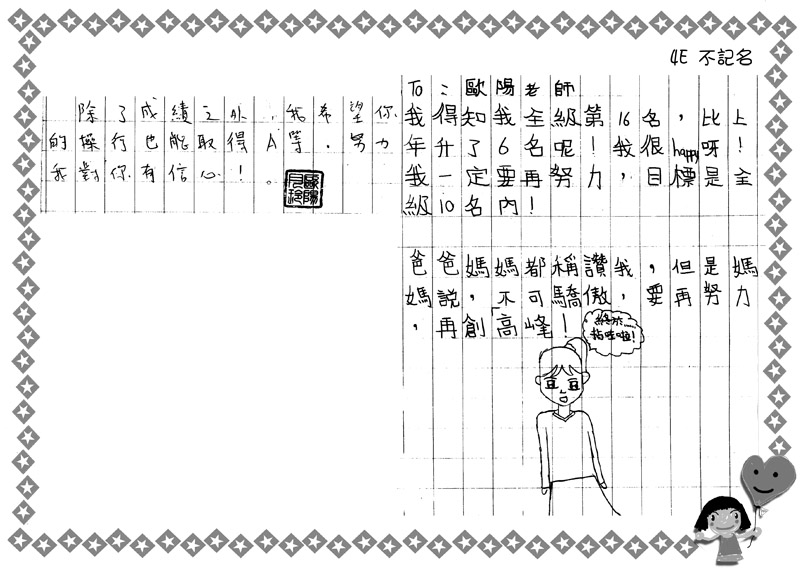 4E 不記名
To：歐陽老師
我得知我全級第16名，比上
年升了6名呢！我很happy呀！
我一定要再努力，目標是全
級10名內！
爸爸媽媽都稱讚我，但是媽
媽說，不可驕傲，要再努力
，再創「高峰！
終於
抬哇啦！
除了成績之外，我希望你
的操行也能取得A等，努力
我對你有信心！。
歐陽月玲